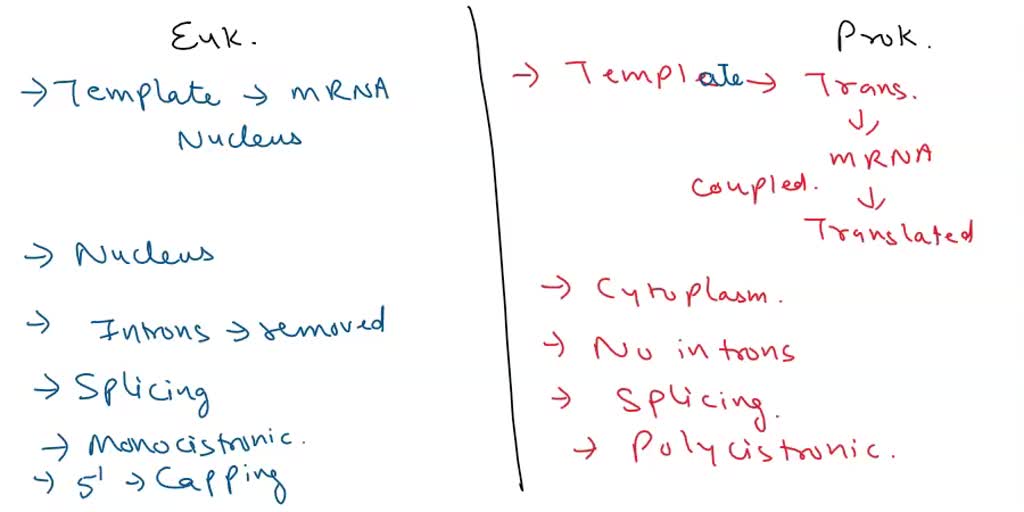 Euk.
→ Template → mRNA
Nucleus
→ Nucleus
→ Introns → removed
→ Splicing
→ Monocistronic.
→ 5' → Capping
Prok.
→ Template → Trans.
↓
mRNA
Coupled.
↓
Translated
→ Cytoplasm.
→ No introns
→ Splicing.
→ Polycistronic.